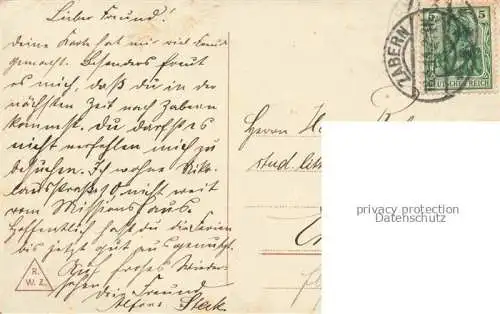 Lieber Freund!
Deine Karte hat mir viel Freud
gemacht. Besonders freut
es mich, daß du in der
nächsten Zeit nach Zabern
kommst. Du darfst es
nicht verfehlen mich zu
besuchen. Ich wohne Niko-
lausstraße 9 nicht weit
vom Missionshaus.
Hoffentlich hast du die Ferien
bis jetzt gut ausgenutzt.
Auf frohes Wieder-
sehen dein Freund
Alfons Steck.
R.
W. Z.
ZABERN
5 5
DEUTSCHES REICH
Herrn
stud.
privacy protection
Datenschutz